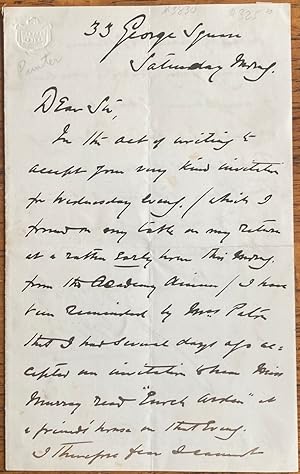 Painter
33 George Square
Saturday Morng.
Dear Sir,
In the act of writing to
accept your very kind invitation
for Wednesday Eveng. (which I
found on my table on my return
at a rather Early hour this Morng.
from the Academy Dinner) I have
been reminded by Mrs Paton
that I had several days ago ac-
cepted an invitation to hear Miss
Murray read "Enoch Arden" at
a friend's house on that Eveng.
I therefore fear I cannot